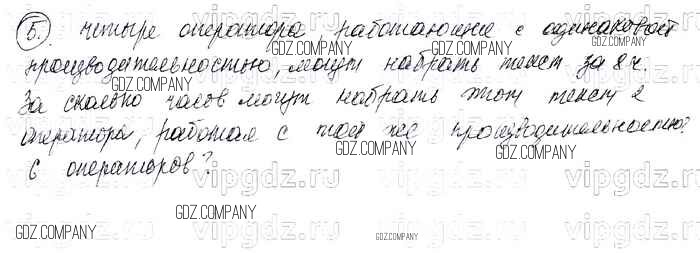 5. четыре оператора, работающие с одинаковой
производительностью, могут набрать текст за 8 ч.
За сколько часов могут набрать этот текст 2
оператора, работая с той же производительностью?
6 операторов?
GDZ.COMPANY
GDZ.COMPANY
GDZ.COMPANY
GDZ.COMPANY
GDZ.COMPANY
GDZ.COMPANY
GDZ.COMPANY
GDZ.COMPANY
vipgdz.ru
vipgdz.ru
vipgdz.ru
vipgdz.ru
vipgdz.ru
vipgdz.ru